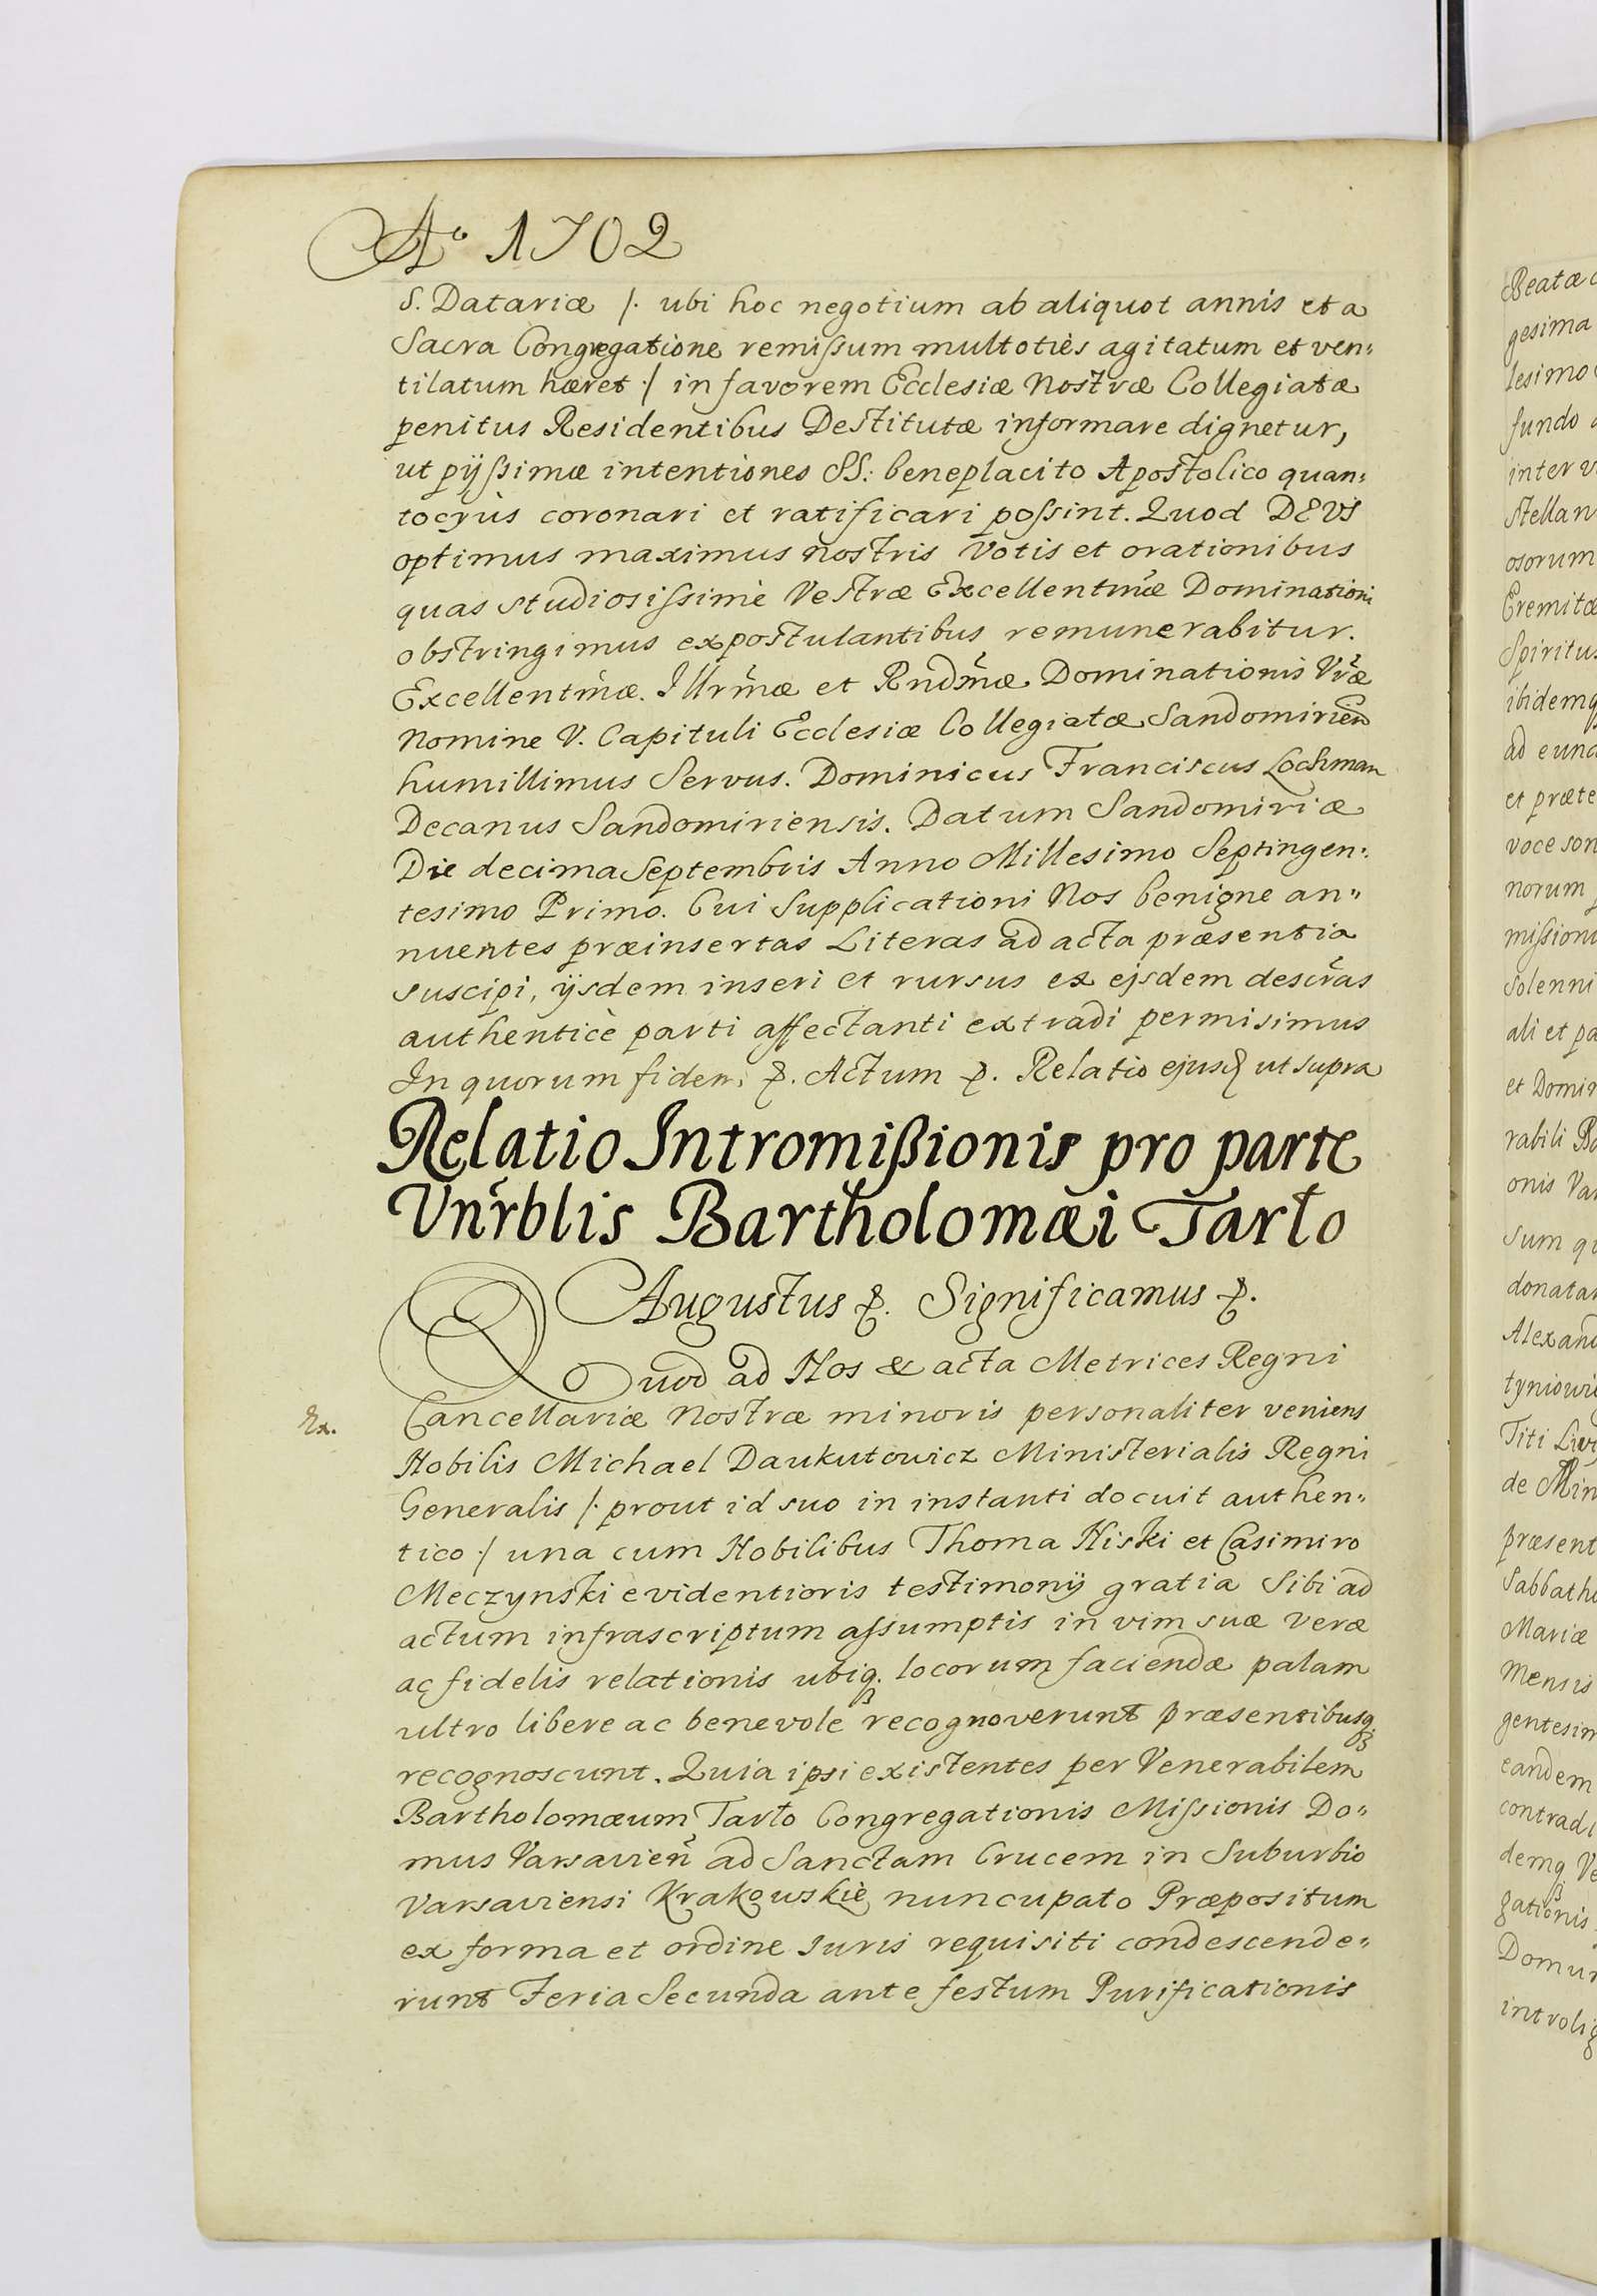 Aº 1702
S. Datariæ /. ubi hoc negotium ab aliquot annis et a
Sacra Congregatione remiſsum multotiès agitatum et ven:
tilatum hæret ./ in favorem Ecclesiæ Nostræ Collegiatæ
penitus Residentibus Destitutæ informare dignetur,
ut pijſsimæ intentiones SS: beneplacito Apostolico quan:
tocyùs coronari et ratificari poſsint. Quod DEVS
optimus maximus nostris Votis et orationibus
quas studiosiſsimè Vestræ Excellentmæ Dominationi
obstringimus expostulantibus remunerabitur.
Excellentmæ. Illrmæ et Rndmæ Dominationis Vræ
Nomine V. Capituli Ecclesiæ Collegiatæ Sandomirien
humillimus Servus. Dominicus Franciscus Lochman
Decanus Sandomiriensis. Datum Sandomiriæ
Die decima Septembris Anno Millesimo Septingen:
tesimo Primo. Cui Supplicationi Nos benigne an"
nuentes præinsertas Literas ad acta præsentia
suscipi, ijsdem inseri et rursus ex ejsdem descras
authenticè parti affectanti extradi permisimus
In quorum fidem &. Actum &. Relatio ejusd ut supra
Relatio Intromißionis pro parte
Vnrblis Bartholomæi Tarło
Augustus &. Significamus &.
Quod ad Nos & acta Metrices Regni
Ex.
Cancellariæ Nostræ minoris personaliter veniens
Nobilis Michael Daukutowicz Ministerialis Regni
Generalis /. prout id suo in instanti docuit authen:
tico ./ una cum Nobilibus Thoma Niski et Casimiro
Meczynski evidentioris testimonij gratia Sibi ad
actum infrascriptum aſsumptis in vim suæ veræ
ac fidelis relationis ubiq locorum faciendæ palam
ultro libere ac benevole recognoverunt præsentibusq
recognoscunt. Quia ipsi existentes per Venerabilem
Bartholomæum Tarło Congregationis Miſsionis Do"
mus Varsavien ad Sanctam Crucem in Suburbio
Varsaviensi Krakowskie nuncupato Præpositum
ex forma et ordine Juris requisiti condescende"
runt Feria Secunda ante festum Purificationis
gesima
lesimo
fundo
inter
osorum
Eremitæ
voce
norum
ali et pa
rabili
onis
Titi
de
Mariæ
Mensis
eandem